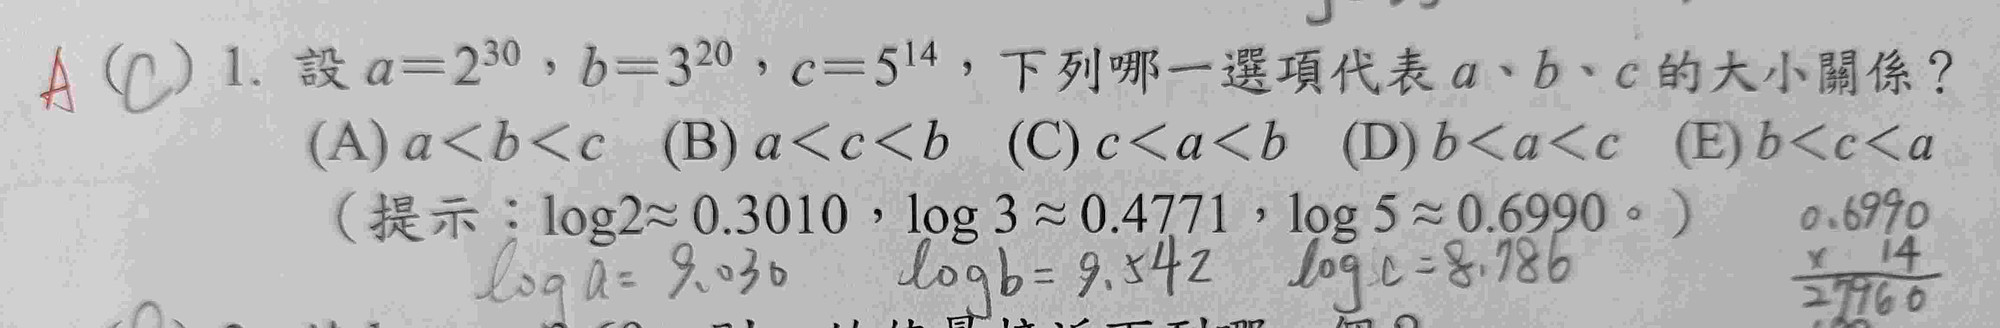 A (C) 1. 設 a=2³⁰，b=3²⁰，c=5¹⁴，下列哪一選項代表 a、b、c 的大小關係？
(A) a<b<c (B) a<c<b (C) c<a<b (D) b<a<c (E) b<c<a
（提示：log2≈0.3010，log 3≈0.4771，log 5≈0.6990。）
log a = 9.030 log b = 9.542 log c = 8.786
0.6990
x 14
27960